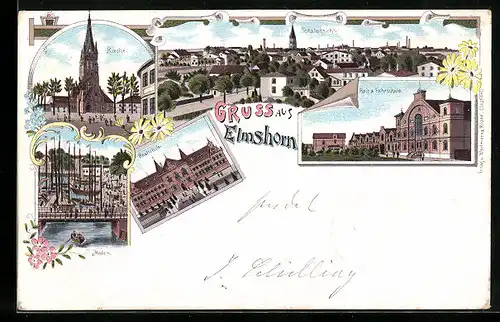 Kirche.
Totalansicht.
GRUSS AUS
Elmshorn.
Reit & Fahrschule.
Realschule.
Hafen.
sendet
J. Schilling